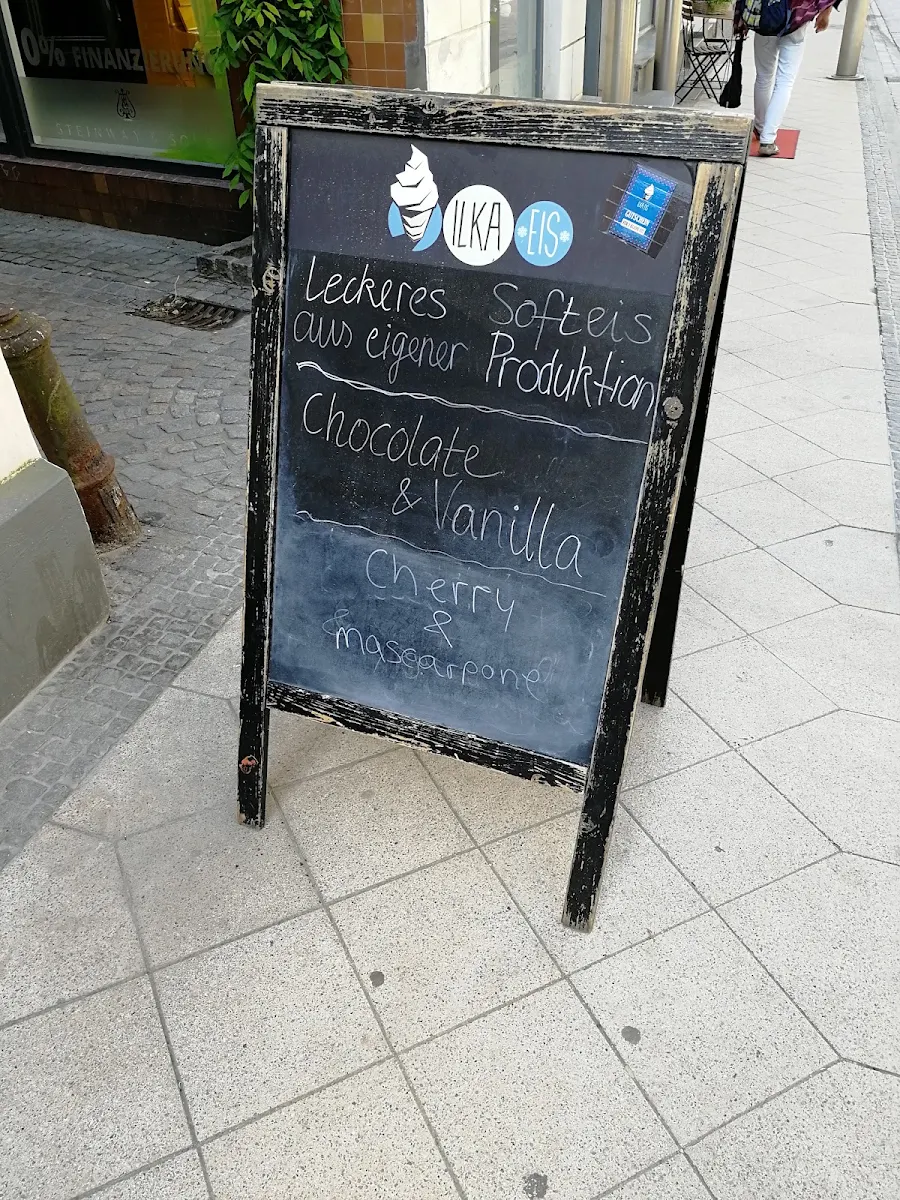 0% FINANZIERUNG
ILKA EIS
GUTSCHEIN
Leckeres Softeis
aus eigener Produktion
Chocolate
& Vanilla
Cherry
&
mascarpone